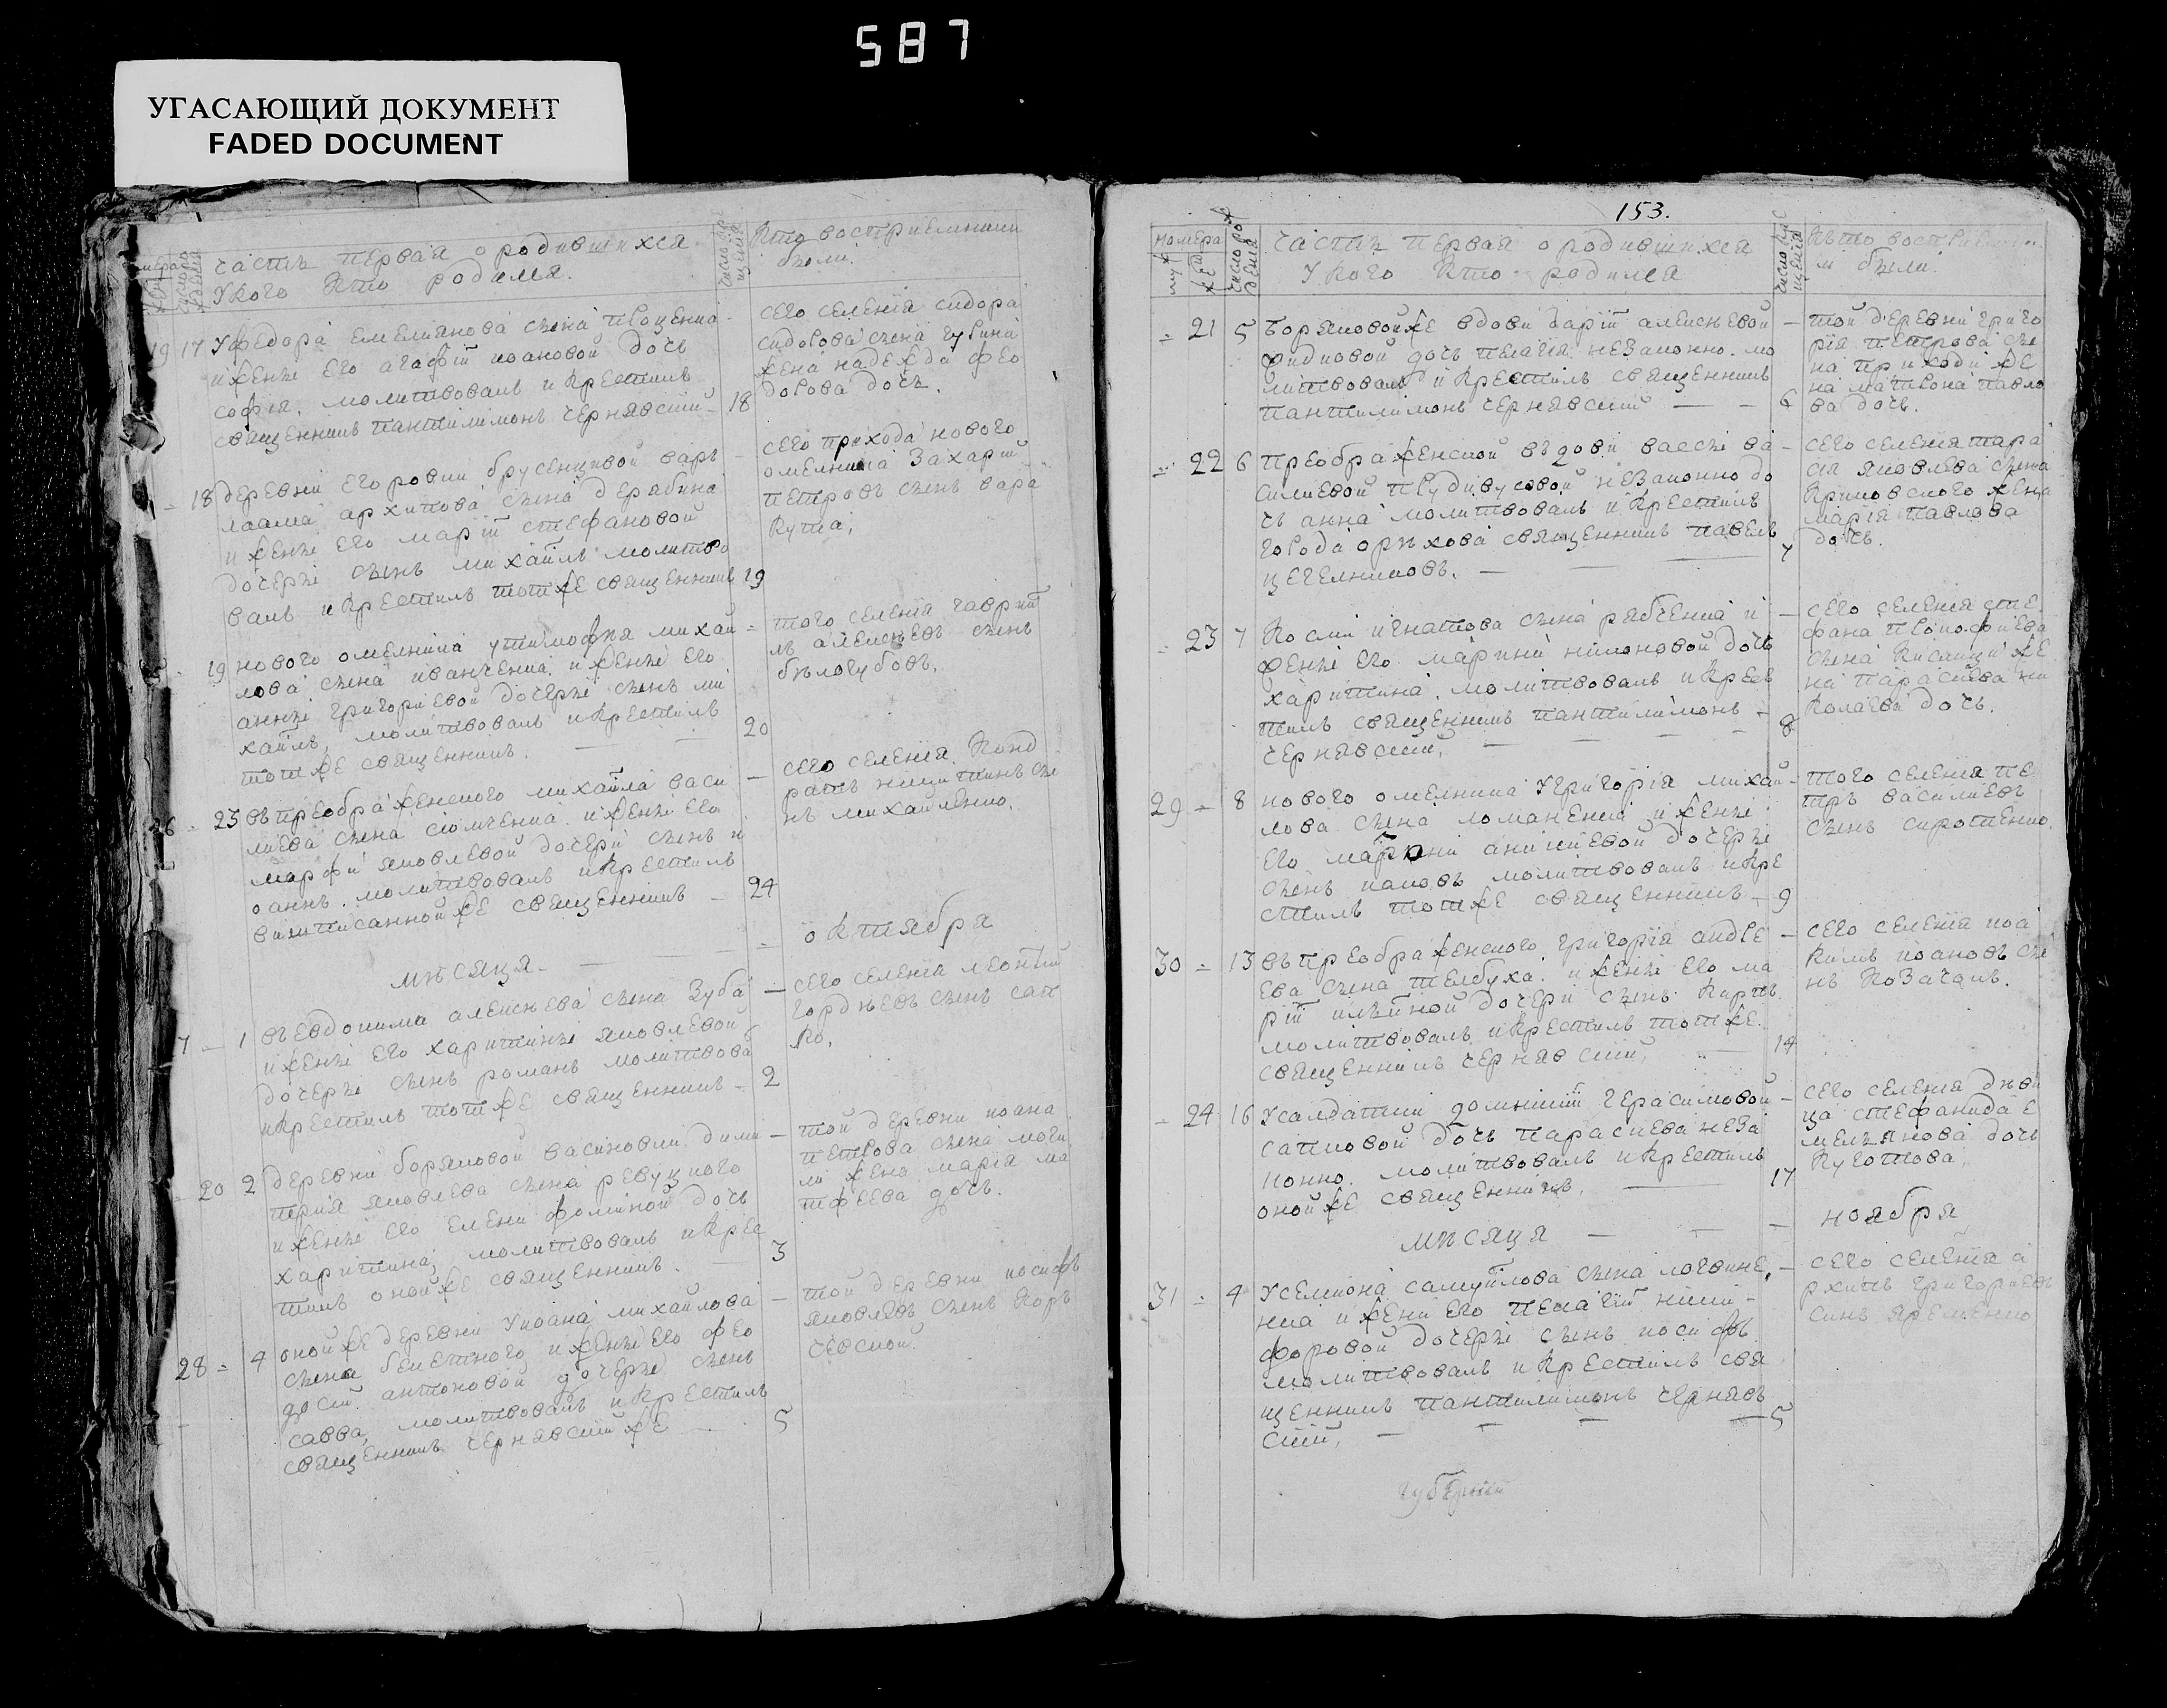 587
УГАСАЮЩИЙ ДОКУМЕНТ
FADED DOCUMENT
часть первая о родившихся
У кого кто родился.
кто восприемники
были.
19 17 У федора емелиянова сына проценка
и жены его агафiи иоановой дочь
софiя. молитвовалъ и крестилъ
священникъ пантилимонъ чернявскiй 18
сего селенiя сидора
сидорова сына
жена надежда фео
дорова дочь.
18 деревни егоровки брусенцивой варъ
лаама архипова сына дерябина
и жены его марiи стефановой
дочеры сынъ михаилъ молитво
валъ и крестилъ тотже священникъ 19
сего прихода нового
омелника захарiй
петровъ сынъ вара
кута,
19 нового омелника у тимофея михаи
лова сына иванченка и жены его
анны григориевой дочеры сынъ ми
хаилъ, молитвовалъ и крестилъ
тотже священникъ. 20
того селенiя гаврiи
лъ алексѣевъ сынъ
бѣлогубовъ.
26 23 въ преображенского михаила васи
лиева сына и жены его
марфи яковлевой дочери сынъ и
оаннъ. молитвовалъ и крестилъ
вишписанной же священникъ 24
сего селенiя Конд
ратъ никитинъ сы
нъ михайленко.
мѣсяца октября
7 1 въ евдокима алексѣева сына зуба
и жены его харитины яковлевой
дочеры сынъ романъ молитвова
и крестилъ тотже священникъ 2
сего селенiя леонтiй
гордѣевъ сынъ сап
ко.
20 2 деревни боряковой васиновки дими
трiя яковлева сына ревуцкого
и жены его елени фоминой дочь
харитина, молитвовалъ и крес
тилъ онойже священникъ. 3
той деревни иоана
петрова сына моги
ли жена марiя ма
тфеева дочь.
28 4 онойже деревни у иоана михайлова
сына бекетного и жены его фео
досiи антоновой дочеры сынъ
савва, молитвовалъ и крестилъ
священникъ чернявскiй же 5
той деревни иосифъ
яковлевъ сынъ Коръ
чевской
153.
номера
муж жен
число рож
денiя
часть первая о родившихся
У кого кто родился
число кре
щенiя
кто воспрiемни
ки были
21 5 Боряковойже вдови дарiи алексѣевой
фидиовой дочь пелагiя незаконно. мо
литвовалъ и крестилъ священникъ
пантилимонъ чернявскiй 6
той деревни григо
рiя петрова сы
на приходи же
на матрона павло
ва дочь.
22 6 преображенской въдови вассы ва
силиевой незаконно до
чь анна молитвовалъ и крестилъ
города орѣхова священникъ павелъ 7
цегелниковъ.
сего селенiя тара
сiя яковлева сына
Криновского жена
марiя павлова
дочь.
23 7 Косми игнатова сына рябченка и
жены его марини никоновой дочь
харитина. молитвовалъ и крес
тилъ священникъ пантилимонъ 8
чернявскiй,
сего селенiя сте
фана прокофиева
сына Кислици же
на парасева ни
колаева дочь.
29 8 нового омелника у григорiя михаи
лова сына романенка и жены
его марини аникiевой дочеры
сынъ иаковъ молитвовалъ и кре
стилъ тотже священникъ 9
того селенiя пе
тръ василиевъ
сынъ сиротенко.
30 13 въ преображенского григорiя андре
ева сына телбуха и жены его ма
рiи илѣиной дочери сынъ Карпъ
молитвовалъ и крестилъ тотже
священникъ чернявскiй, 14
сего селенiя иоа
кимъ иоановъ сы
нъ Козачокъ.
24 16 У салдатки домникiи герасимовой
сапковой дочь парасиева неза
конно. молитвовалъ и крестилъ
онойже священникъ. 17
сего селенiя дѣви
ца стефанида е
мелянова дочь
Куготова,
мѣсяца ноября
31 4 У семиона самуйлова сына логвине
нка и жени его пелагiи ники
форовой дочеры сынъ иосифъ
молитвовалъ и крестилъ свя
щенникъ пантилимонъ чернявъ 5
скiй,
сего селенiя а
рхипъ григориевъ
синъ яременко
губернiи